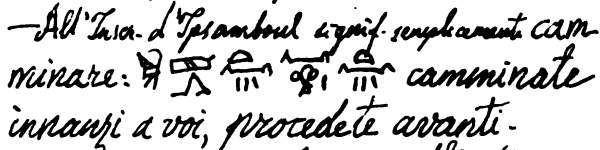 —All'Inscr. d'Ipsamboul signif. semplicemente cam
minare: camminate
innanzi a voi, procedete avanti.